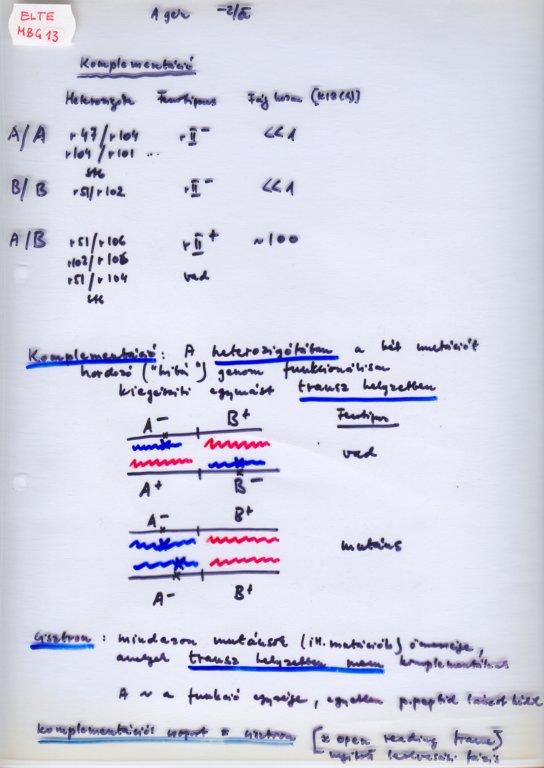 ELTE
MBG 13
A gén -2/a
Komplementáció
Heterozigóta Fenotípus Fág hozam [K12(λ)]
A/A r47/r104 rII⁻ <<1
r104/r101 ...
stb
B/B r51/r102 rII⁻ <<1
A/B r51/r106 rII⁺ ~100
r102/r106
r51/r104 vad
stb
Komplementáció: A heterozigótában a két mutációt
hordozó ("hibás") genom funkcionálisan
kiegészíti egymást transz helyzetben
A⁻ B⁺ Fenotípus
vad
A⁺ B⁻
A⁻ B⁺
mutáns
A⁻ B⁺
Cisztron: mindazon mutánsok (ill. mutációk) összessége,
amelyek transz helyzetben nem komplementálnak
A ~ a funkció egysége, egyetlen p.peptid láncot kódol
Komplementációs csoport = cisztron [≅ open reading frame]
nyitott leolvasási fázis